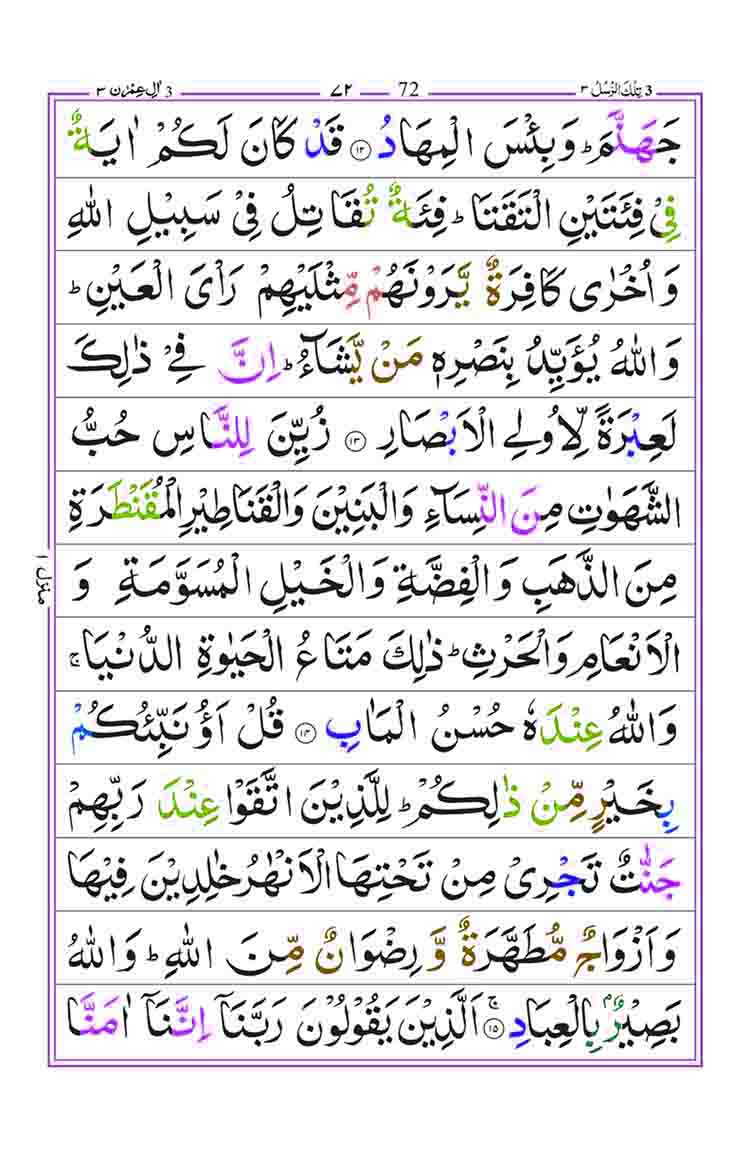 3 تِلْكَ الرُّسُلُ ٣ 72 ٧٢ 3 اٰلِ عِمْرٰن ٣
جَهَنَّمَ ؕ وَبِئْسَ الْمِهَادُ ۝۱۲ قَدْ كَانَ لَكُمْ اٰيَةٌ
فِیْ فِئَتَيْنِ الْتَقَتَا ؕ فِئَةٌ تُقَاتِلُ فِیْ سَبِيْلِ اللّٰهِ
وَ اُخْرٰى كَافِرَةٌ يَّرَوْنَهُمْ مِّثْلَيْهِمْ رَاْىَ الْعَيْنِ ؕ
وَ اللّٰهُ يُؤَيِّدُ بِنَصْرِهٖ مَنْ يَّشَآءُ ؕ اِنَّ فِیْ ذٰلِكَ
لَعِبْرَةً لِّاُولِی الْاَبْصَارِ ۝۱۳ زُيِّنَ لِلنَّاسِ حُبُّ
الشَّهَوٰتِ مِنَ النِّسَآءِ وَالْبَنِيْنَ وَالْقَنَاطِيْرِ الْمُقَنْطَرَةِ
مِنَ الذَّهَبِ وَالْفِضَّةِ وَالْخَيْلِ الْمُسَوَّمَةِ وَ
الْاَنْعَامِ وَالْحَرْثِ ؕ ذٰلِكَ مَتَاعُ الْحَيٰوةِ الدُّنْيَا ۚ
وَاللّٰهُ عِنْدَهٗ حُسْنُ الْمَاٰبِ ۝۱۴ قُلْ اَؤُنَبِّئُكُمْ
بِخَيْرٍ مِّنْ ذٰلِكُمْ ؕ لِلَّذِيْنَ اتَّقَوْا عِنْدَ رَبِّهِمْ
جَنّٰتٌ تَجْرِیْ مِنْ تَحْتِهَا الْاَنْهٰرُ خٰلِدِيْنَ فِيْهَا
وَ اَزْوَاجٌ مُّطَهَّرَةٌ وَّ رِضْوَانٌ مِّنَ اللّٰهِ ؕ وَاللّٰهُ
بَصِيْرٌۢ بِالْعِبَادِ ۚ ۝۱۵ اَلَّذِيْنَ يَقُوْلُوْنَ رَبَّنَاۤ اِنَّنَاۤ اٰمَنَّا
منزل ۱